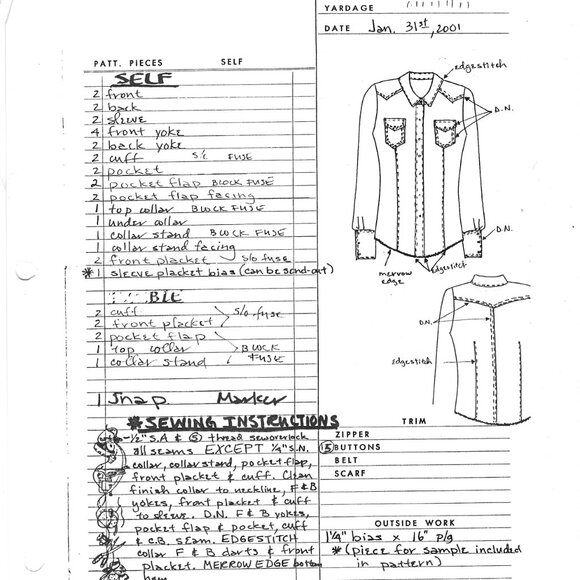 YARDAGE
DATE Jan. 31st, 2001
PATT. PIECES SELF
SELF
2 front
2 back
2 sleeve
4 front yoke
2 back yoke
2 cuff S/C FUSE
2 pocket
2 pocket flap BLOCK FUSE
2 pocket flap facing
1 top collar BLOCK FUSE
1 under collar
1 collar stand BLOCK FUSE
1 collar stand facing
2 front placket s/o fuse
* 1 sleeve placket bias (can be send-out)
2 cuff
2 front placket S/o fuse
2 pocket flap
1 top collar BLOCK
1 collar stand FUSE
1 Snap Marker
*SEWING INSTRUCTIONS
1/2" S.A & 5 thread sewoverlock
all seams EXCEPT 1/4" S.N.
collar, collar stand, pocket flap,
front placket & cuff. Clean
finish collar to neckline, F & B
yokes, front placket & cuff
to sleeve. D.N. F & B yokes,
pocket flap & pocket, cuff
& C.B. SEAM. EDGESTITCH
collar F & B darts & front
placket. MERROW EDGE bottom
hem
edgestitch
D.N.
D.N.
edgestitch
merrow
edge
D.N.
EDGESTITCH
TRIM
ZIPPER
15 BUTTONS
BELT
SCARF
OUTSIDE WORK
1 1/4" bias x 16" p/g
*(piece for sample included
in pattern)